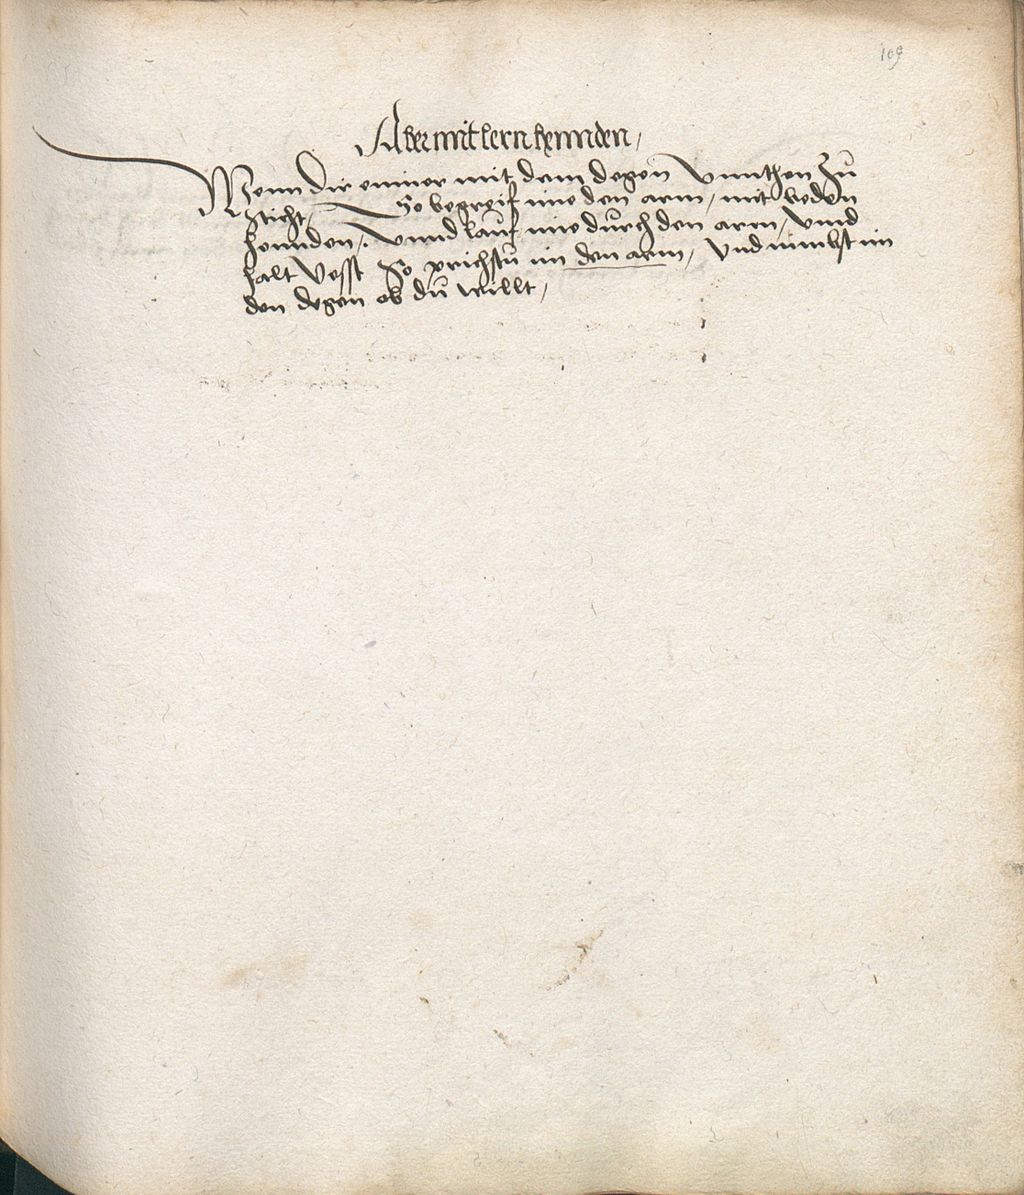 109
Aber mit lern hennden,
Wenn dir eniner mit dem degen Vnnthen Zů
sticht, So begreif ime den arm, mit beden
hennden, Vnnd lauf ime dürch den arm, Vnnd
halt Vesst So prichstü im den arm, Vnd nimbst im
den degen ob dü willt,